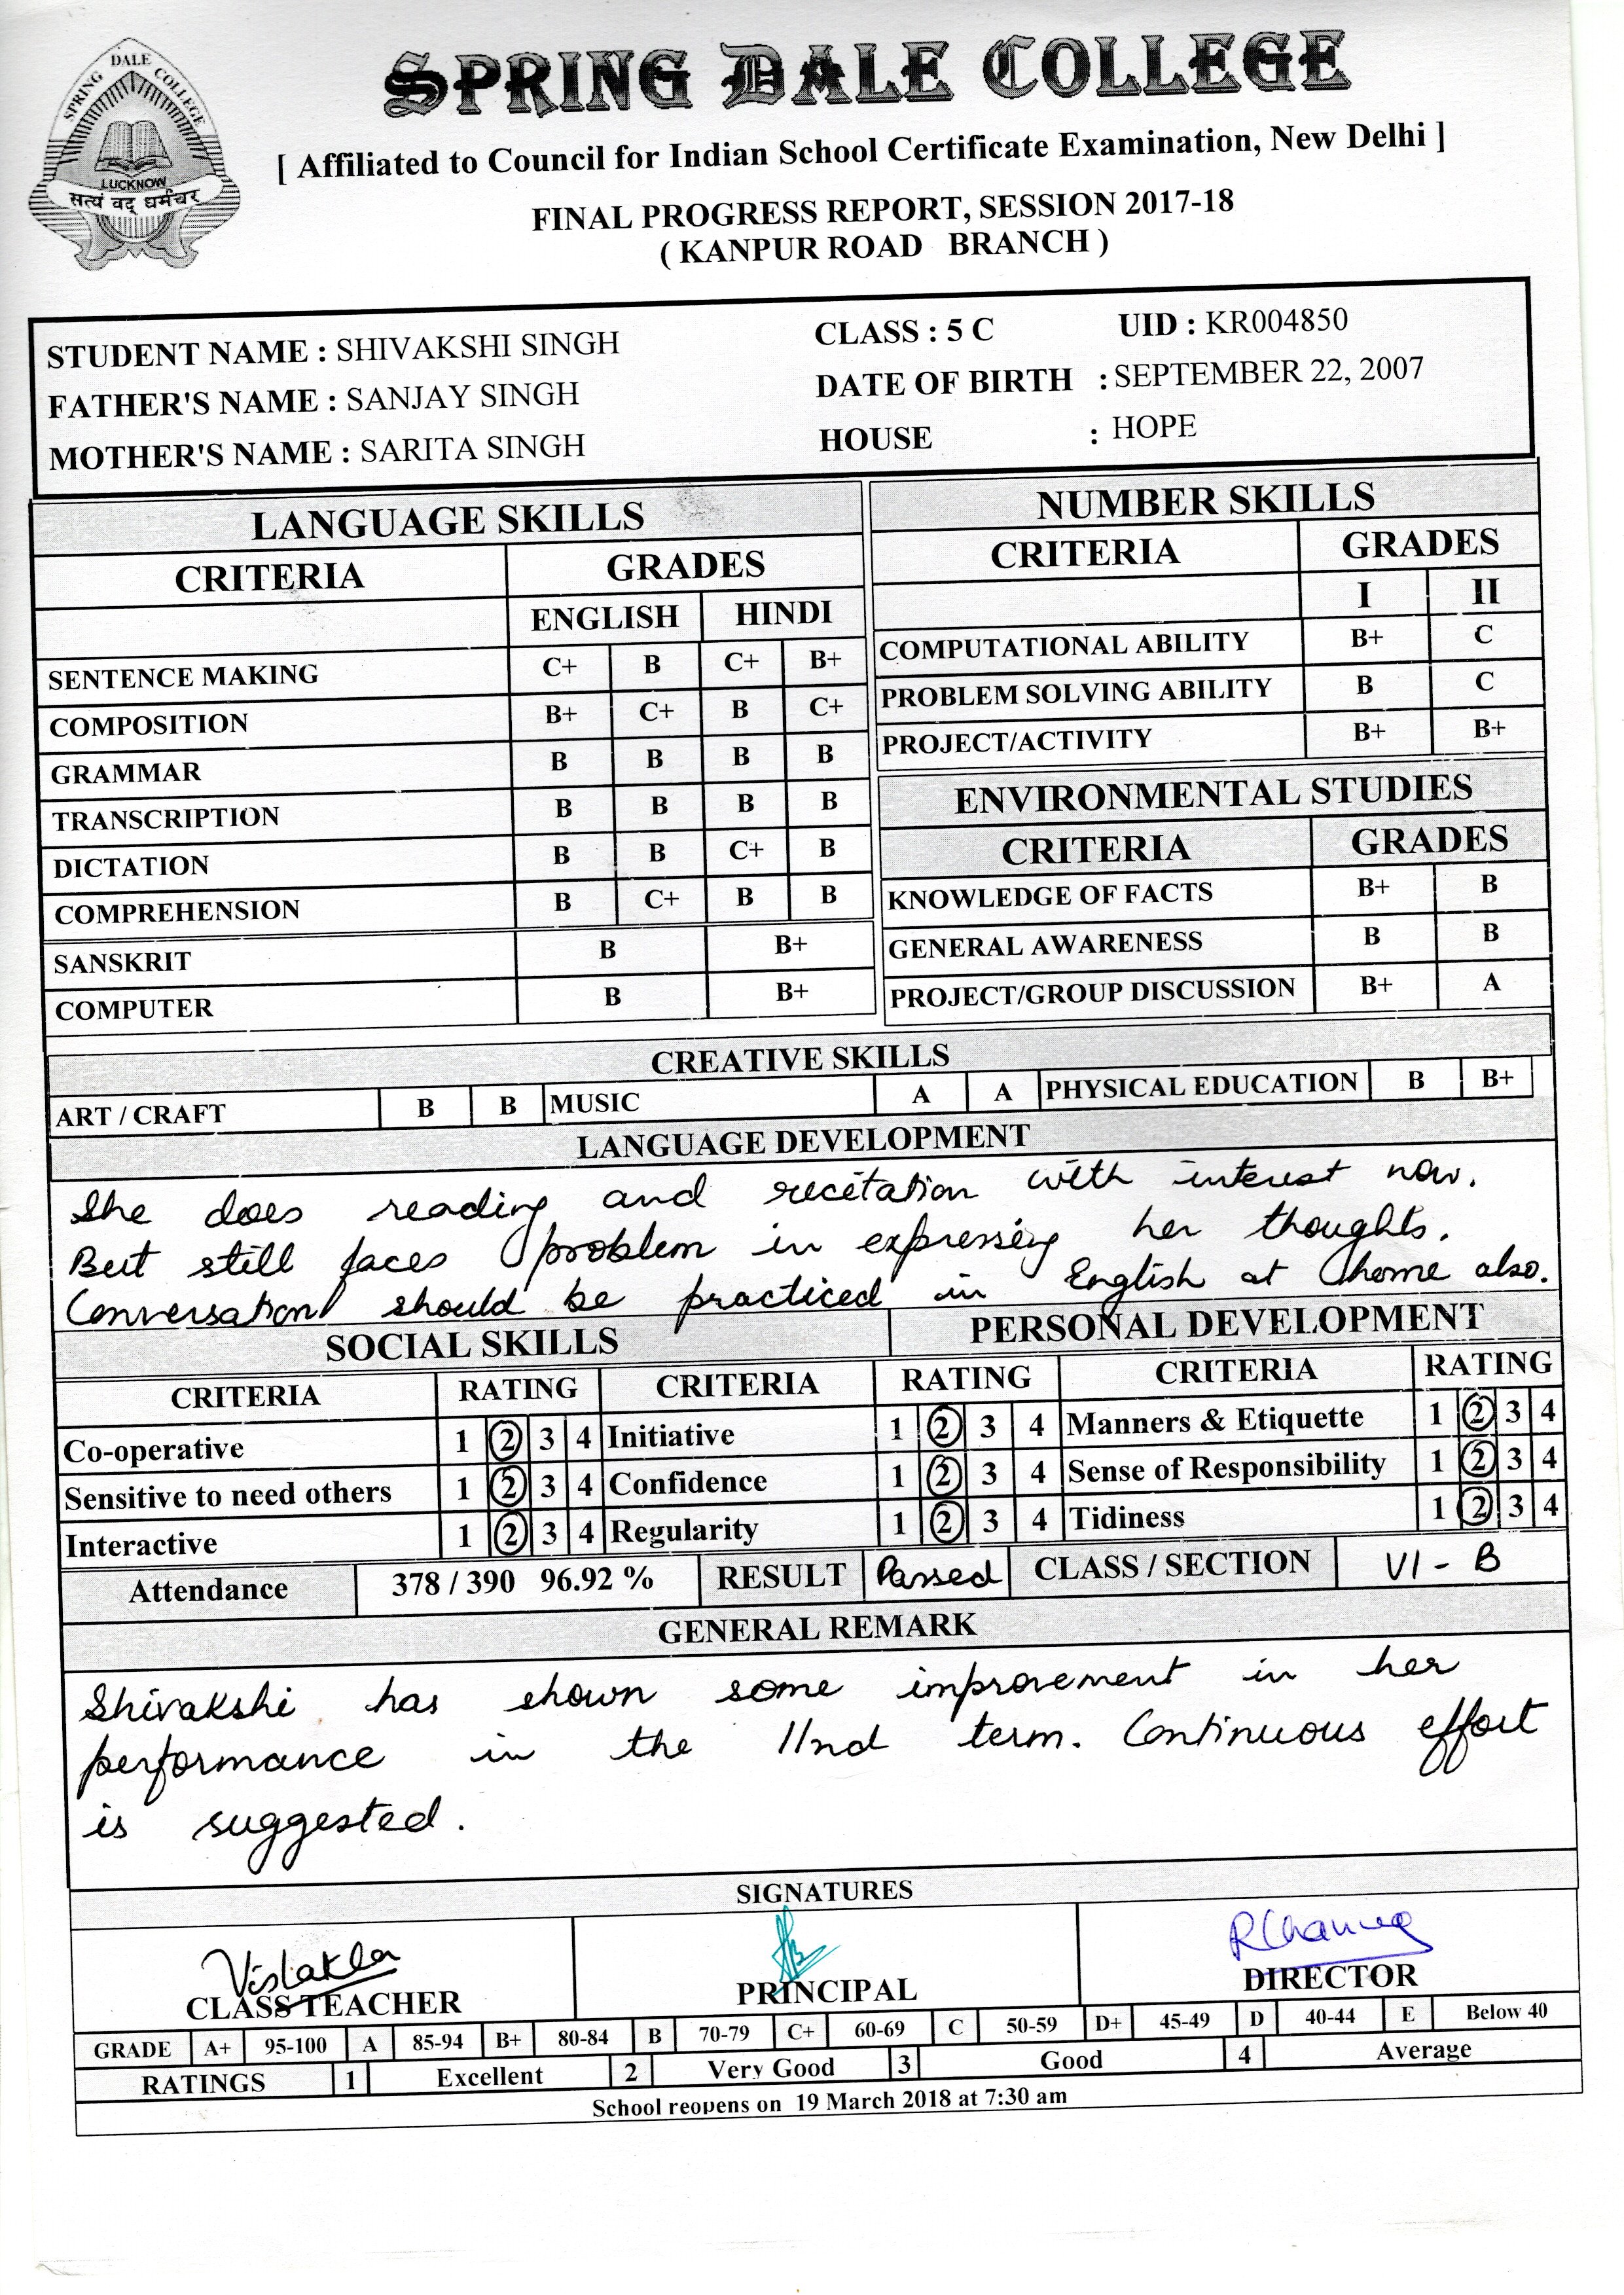 SPRING DALE COLLEGE
LUCKNOW
सत्यं वद् धर्मंचर
SPRING DALE COLLEGE
[ Affiliated to Council for Indian School Certificate Examination, New Delhi ]
FINAL PROGRESS REPORT, SESSION 2017-18
( KANPUR ROAD BRANCH )
STUDENT NAME : SHIVAKSHI SINGH CLASS : 5 C UID : KR004850
FATHER'S NAME : SANJAY SINGH DATE OF BIRTH : SEPTEMBER 22, 2007
MOTHER'S NAME : SARITA SINGH HOUSE : HOPE
LANGUAGE SKILLS
CRITERIA GRADES
ENGLISH HINDI
SENTENCE MAKING C+ B C+ B+
COMPOSITION B+ C+ B C+
GRAMMAR B B B B
TRANSCRIPTION B B B B
DICTATION B B C+ B
COMPREHENSION B C+ B B
SANSKRIT B B+
COMPUTER B B+
NUMBER SKILLS
CRITERIA GRADES
I II
COMPUTATIONAL ABILITY B+ C
PROBLEM SOLVING ABILITY B C
PROJECT/ACTIVITY B+ B+
ENVIRONMENTAL STUDIES
CRITERIA GRADES
KNOWLEDGE OF FACTS B+ B
GENERAL AWARENESS B B
PROJECT/GROUP DISCUSSION B+ A
CREATIVE SKILLS
ART / CRAFT B B MUSIC A A PHYSICAL EDUCATION B B+
LANGUAGE DEVELOPMENT
She does reading and recitation with interest now.
But still faces problem in expressing her thoughts.
Conversation should be practiced in English at home also.
SOCIAL SKILLS PERSONAL DEVELOPMENT
CRITERIA RATING CRITERIA RATING CRITERIA RATING
Co-operative 1 2 3 4 Initiative 1 2 3 4 Manners & Etiquette 1 2 3 4
Sensitive to need others 1 2 3 4 Confidence 1 2 3 4 Sense of Responsibility 1 2 3 4
Interactive 1 2 3 4 Regularity 1 2 3 4 Tidiness 1 2 3 4
Attendance 378 / 390 96.92 % RESULT Passed CLASS / SECTION VI - B
GENERAL REMARK
Shivakshi has shown some improvement in her
performance in the IInd term. Continuous effort
is suggested.
SIGNATURES
CLASS TEACHER PRINCIPAL DIRECTOR
GRADE A+ 95-100 A 85-94 B+ 80-84 B 70-79 C+ 60-69 C 50-59 D+ 45-49 D 40-44 E Below 40
RATINGS 1 Excellent 2 Very Good 3 Good 4 Average
School reopens on 19 March 2018 at 7:30 am